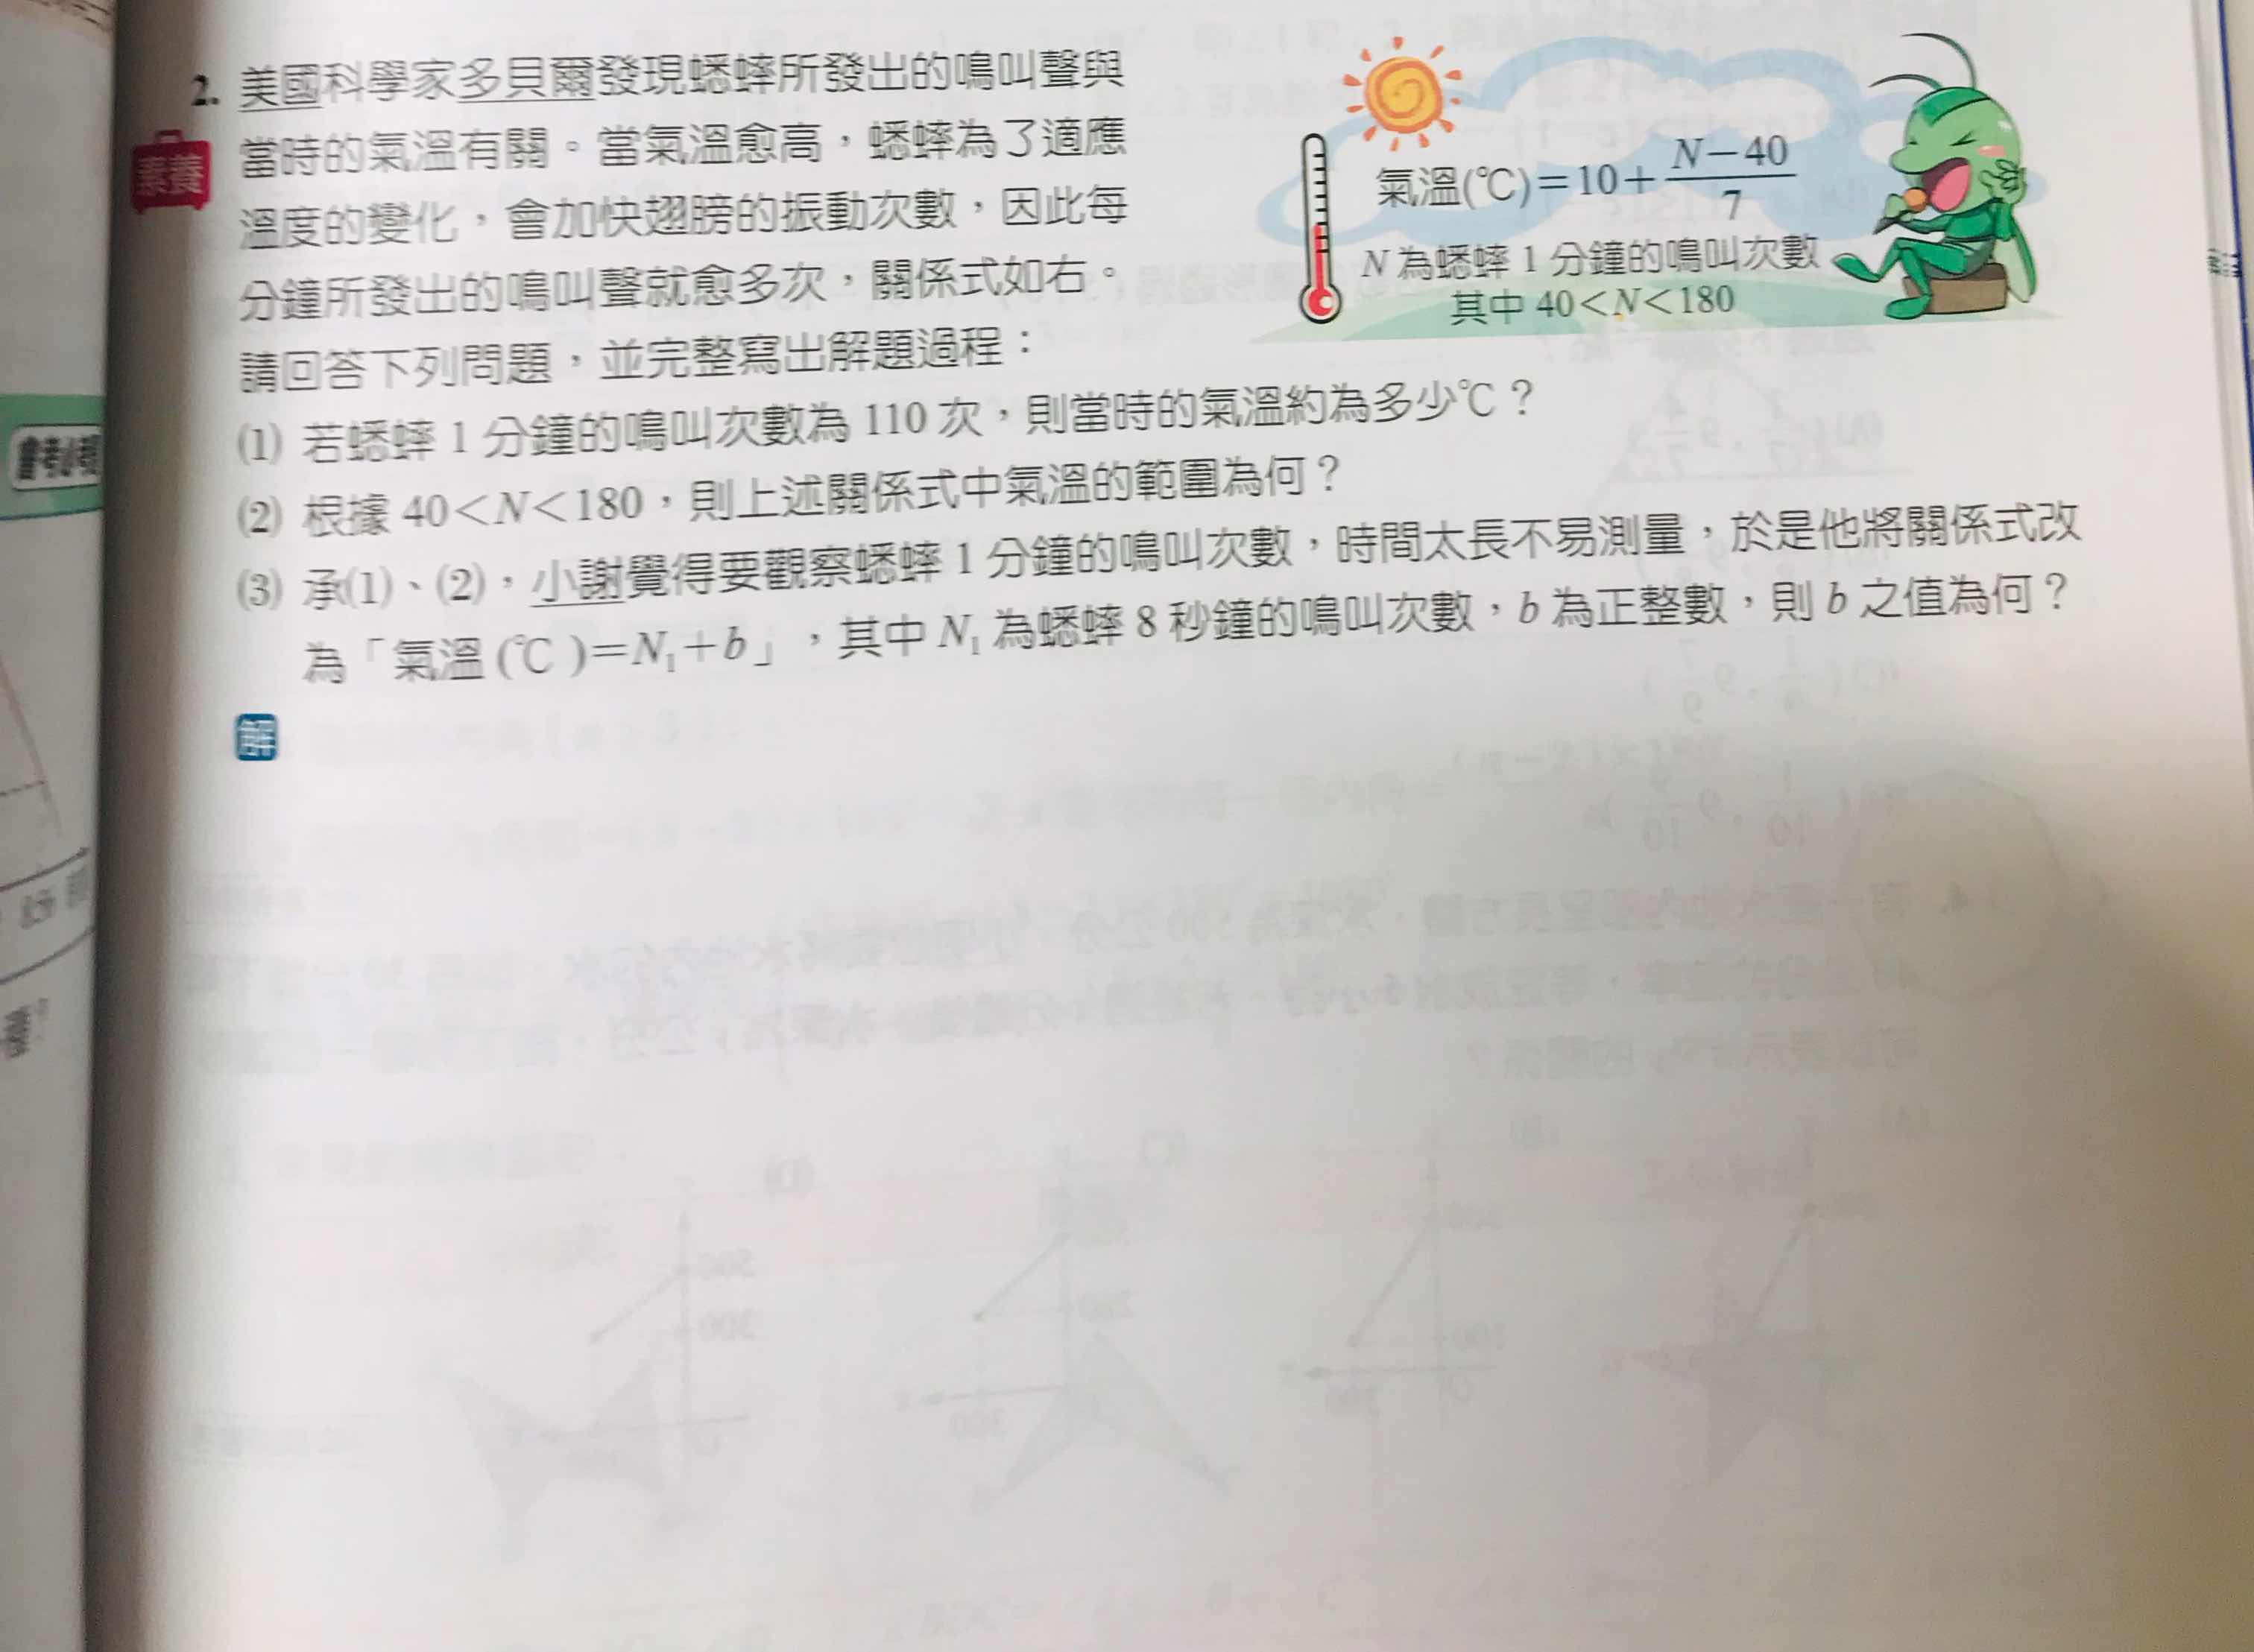 2. 美國科學家多貝爾發現蟋蟀所發出的鳴叫聲與
素養
當時的氣溫有關。當氣溫愈高，蟋蟀為了適應
溫度的變化，會加快翅膀的振動次數，因此每
分鐘所發出的鳴叫聲就愈多次，關係式如右。
請回答下列問題，並完整寫出解題過程：
氣溫(℃)=10+(N−40)/7
N為蟋蟀1分鐘的鳴叫次數
其中40<N<180
(1) 若蟋蟀1分鐘的鳴叫次數為110次，則當時的氣溫約為多少℃？
(2) 根據40<N<180，則上述關係式中氣溫的範圍為何？
(3) 承(1)、(2)，小謝覺得要觀察蟋蟀1分鐘的鳴叫次數，時間太長不易測量，於是他將關係式改
為「氣溫(℃)=N₁+b」，其中N₁為蟋蟀8秒鐘的鳴叫次數，b為正整數，則b之值為何？
解